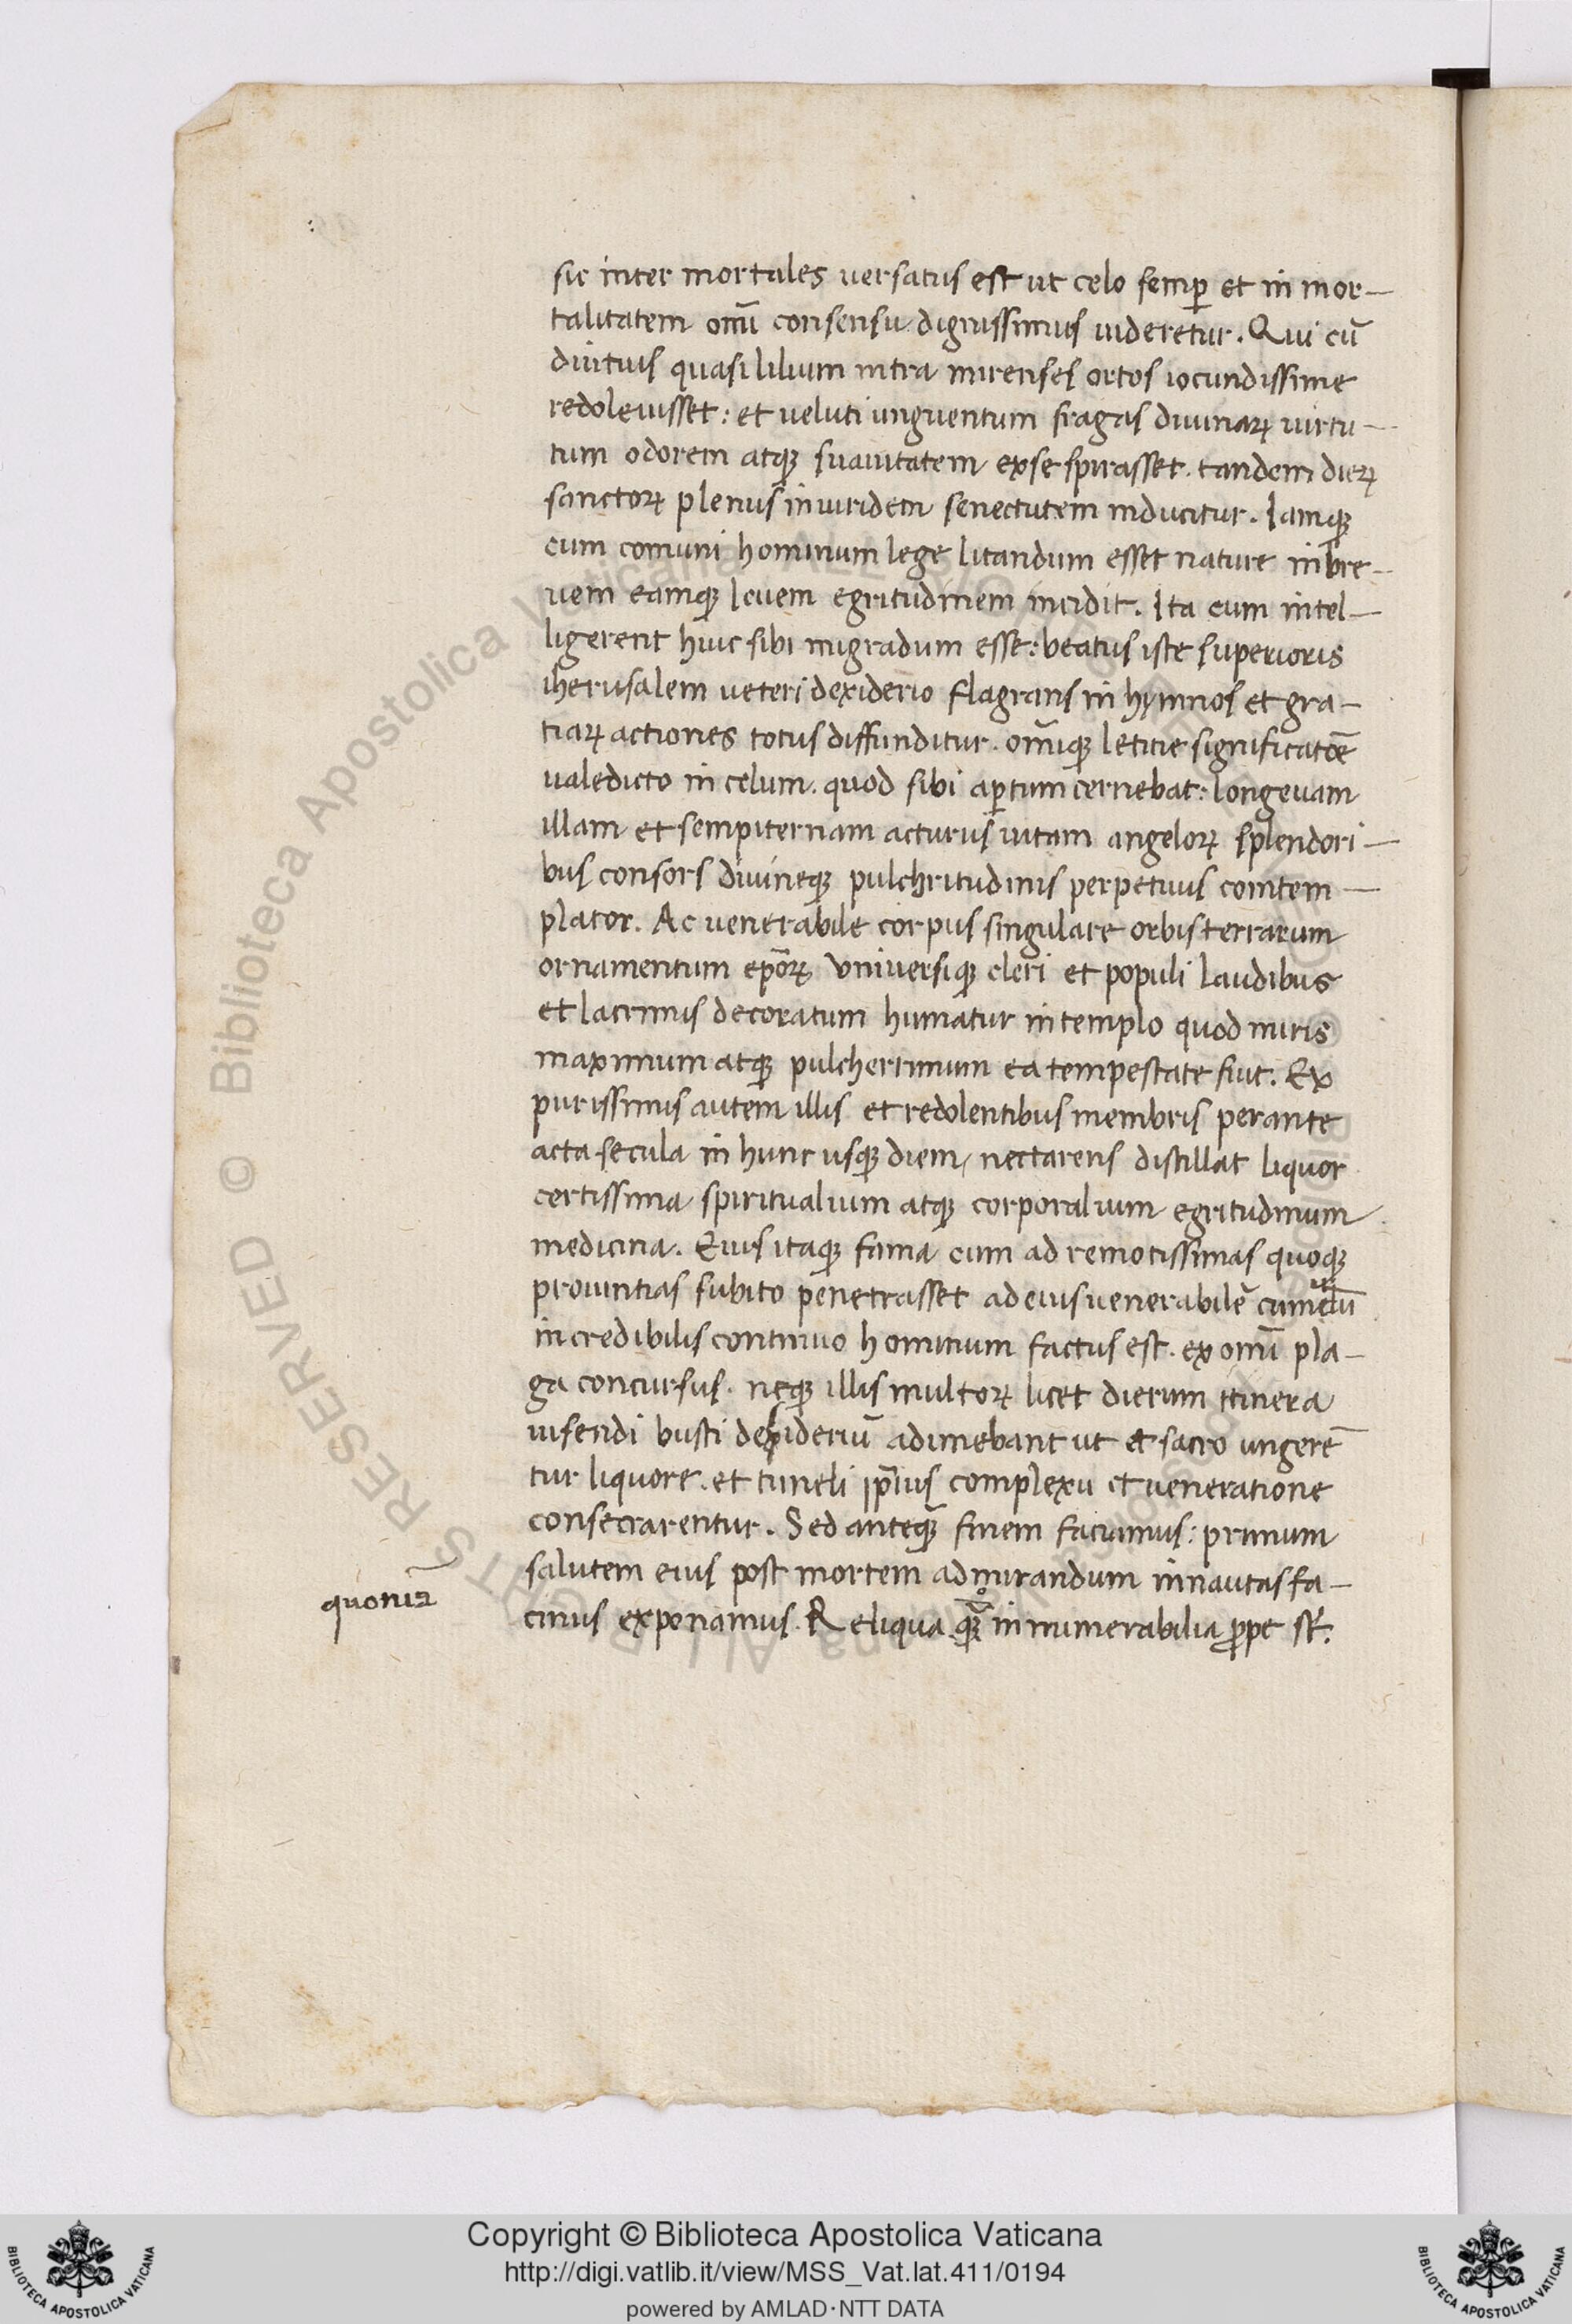 sic inter mortales uersatus est ut celo semp̱ et in mor-
talitatem om̄i consensu dignissimus uideretur. Qui cū
diutius quasi lilium intra mirenses ortos iocundissime
redoleuisset: et ueluti unguentum fragãs diuinaꝝ uirtu-
tum odorem atqꝫ suauitatem exse spirasset. tandem dieꝝ
sanctoꝝ plenus in uiridem senectutem inducitur. Iamqꝫ
cum comuni hominum lege litandum esset nature in bre-
uem eamqꝫ leuem egritudinem incidit. Ita cum intel-
ligerent huic sibi migradum esse: beatus iste superioris
iherusalem ueteri dexiderio flagrans in hymnos et gra-
tiaꝝ actiones totus diffunditur. om̄iqꝫ letitie significatōe
ualedicto in celum. quod sibi ap̱tum cernebat: longeuam
illam et sempiternam acturus uitam angeloꝝ splendori-
bus consors diuineqꝫ pulchritudinis perpetuus comtem-
plator. Ac uenerabile corpus singulare orbis terrarum
ornamentum ep̄oꝝ vniuersiqꝫ cleri et populi laudibus
et lacrimis decoratum humatur in templo quod miris
maximum atqꝫ pulcherrimum ea tempestate fiut. Ex
purissimis autem illis et redolentibus membris perante
acta secula in hunc usqꝫ diem, nectarens distillat liquor
certissima spiritualium atqꝫ corporalium egritudinum
medicina. Eius itaqꝫ fama cum ad remotissimas quoqꝫ
prouintias subito penetrasset ad eius uenerabilē
incredibilis continuo hominum factus est. ex om̄i pla-
ga concursus. neqꝫ illis multoꝝ licet dierum itinera
uisendi busti desideriū adimebant ut et sacro ungerē
tur liquore. et tumeli ip̄ius complexu et ueneratione
consecrarentur. Sed anteqꝫ̄ finem faciamus: primum
salutem eius post mortem admirandum in nautas fa-
quoniã
cinus exponamus. Reliqua qꝫ̄ innumerabilia ꝓpe st̄.
Copyright © Biblioteca Apostolica Vaticana
http://digi.vatlib.it/view/MSS_Vat.lat.411/0194
powered by AMLAD·NTT DATA
BIBLIOTECA APOSTOLICA VATICANA
BIBLIOTECA APOSTOLICA VATICANA